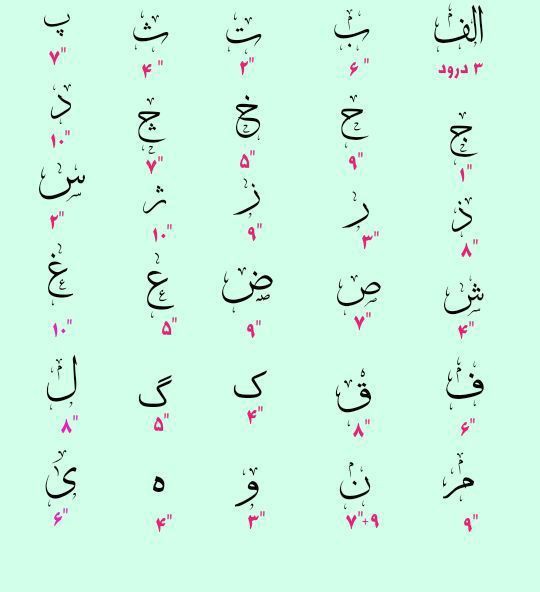 الف ب ت ث پ
۳ درود "۶ "۲ "۴ "۷
ج ح خ چ د
"۱ "۹ "۵ "۷ "۱۰
ذ ر ز ژ س
"۸ "۳ "۹ "۱۰ "۲
ش ص ض ع غ
"۴ "۷ "۹ "۵ "۱۰
ف ق ک گ ل
"۶ "۸ "۴ "۵ "۸
م ن و ه ی
"۹ ۹+"۷ "۳ "۴ "۶